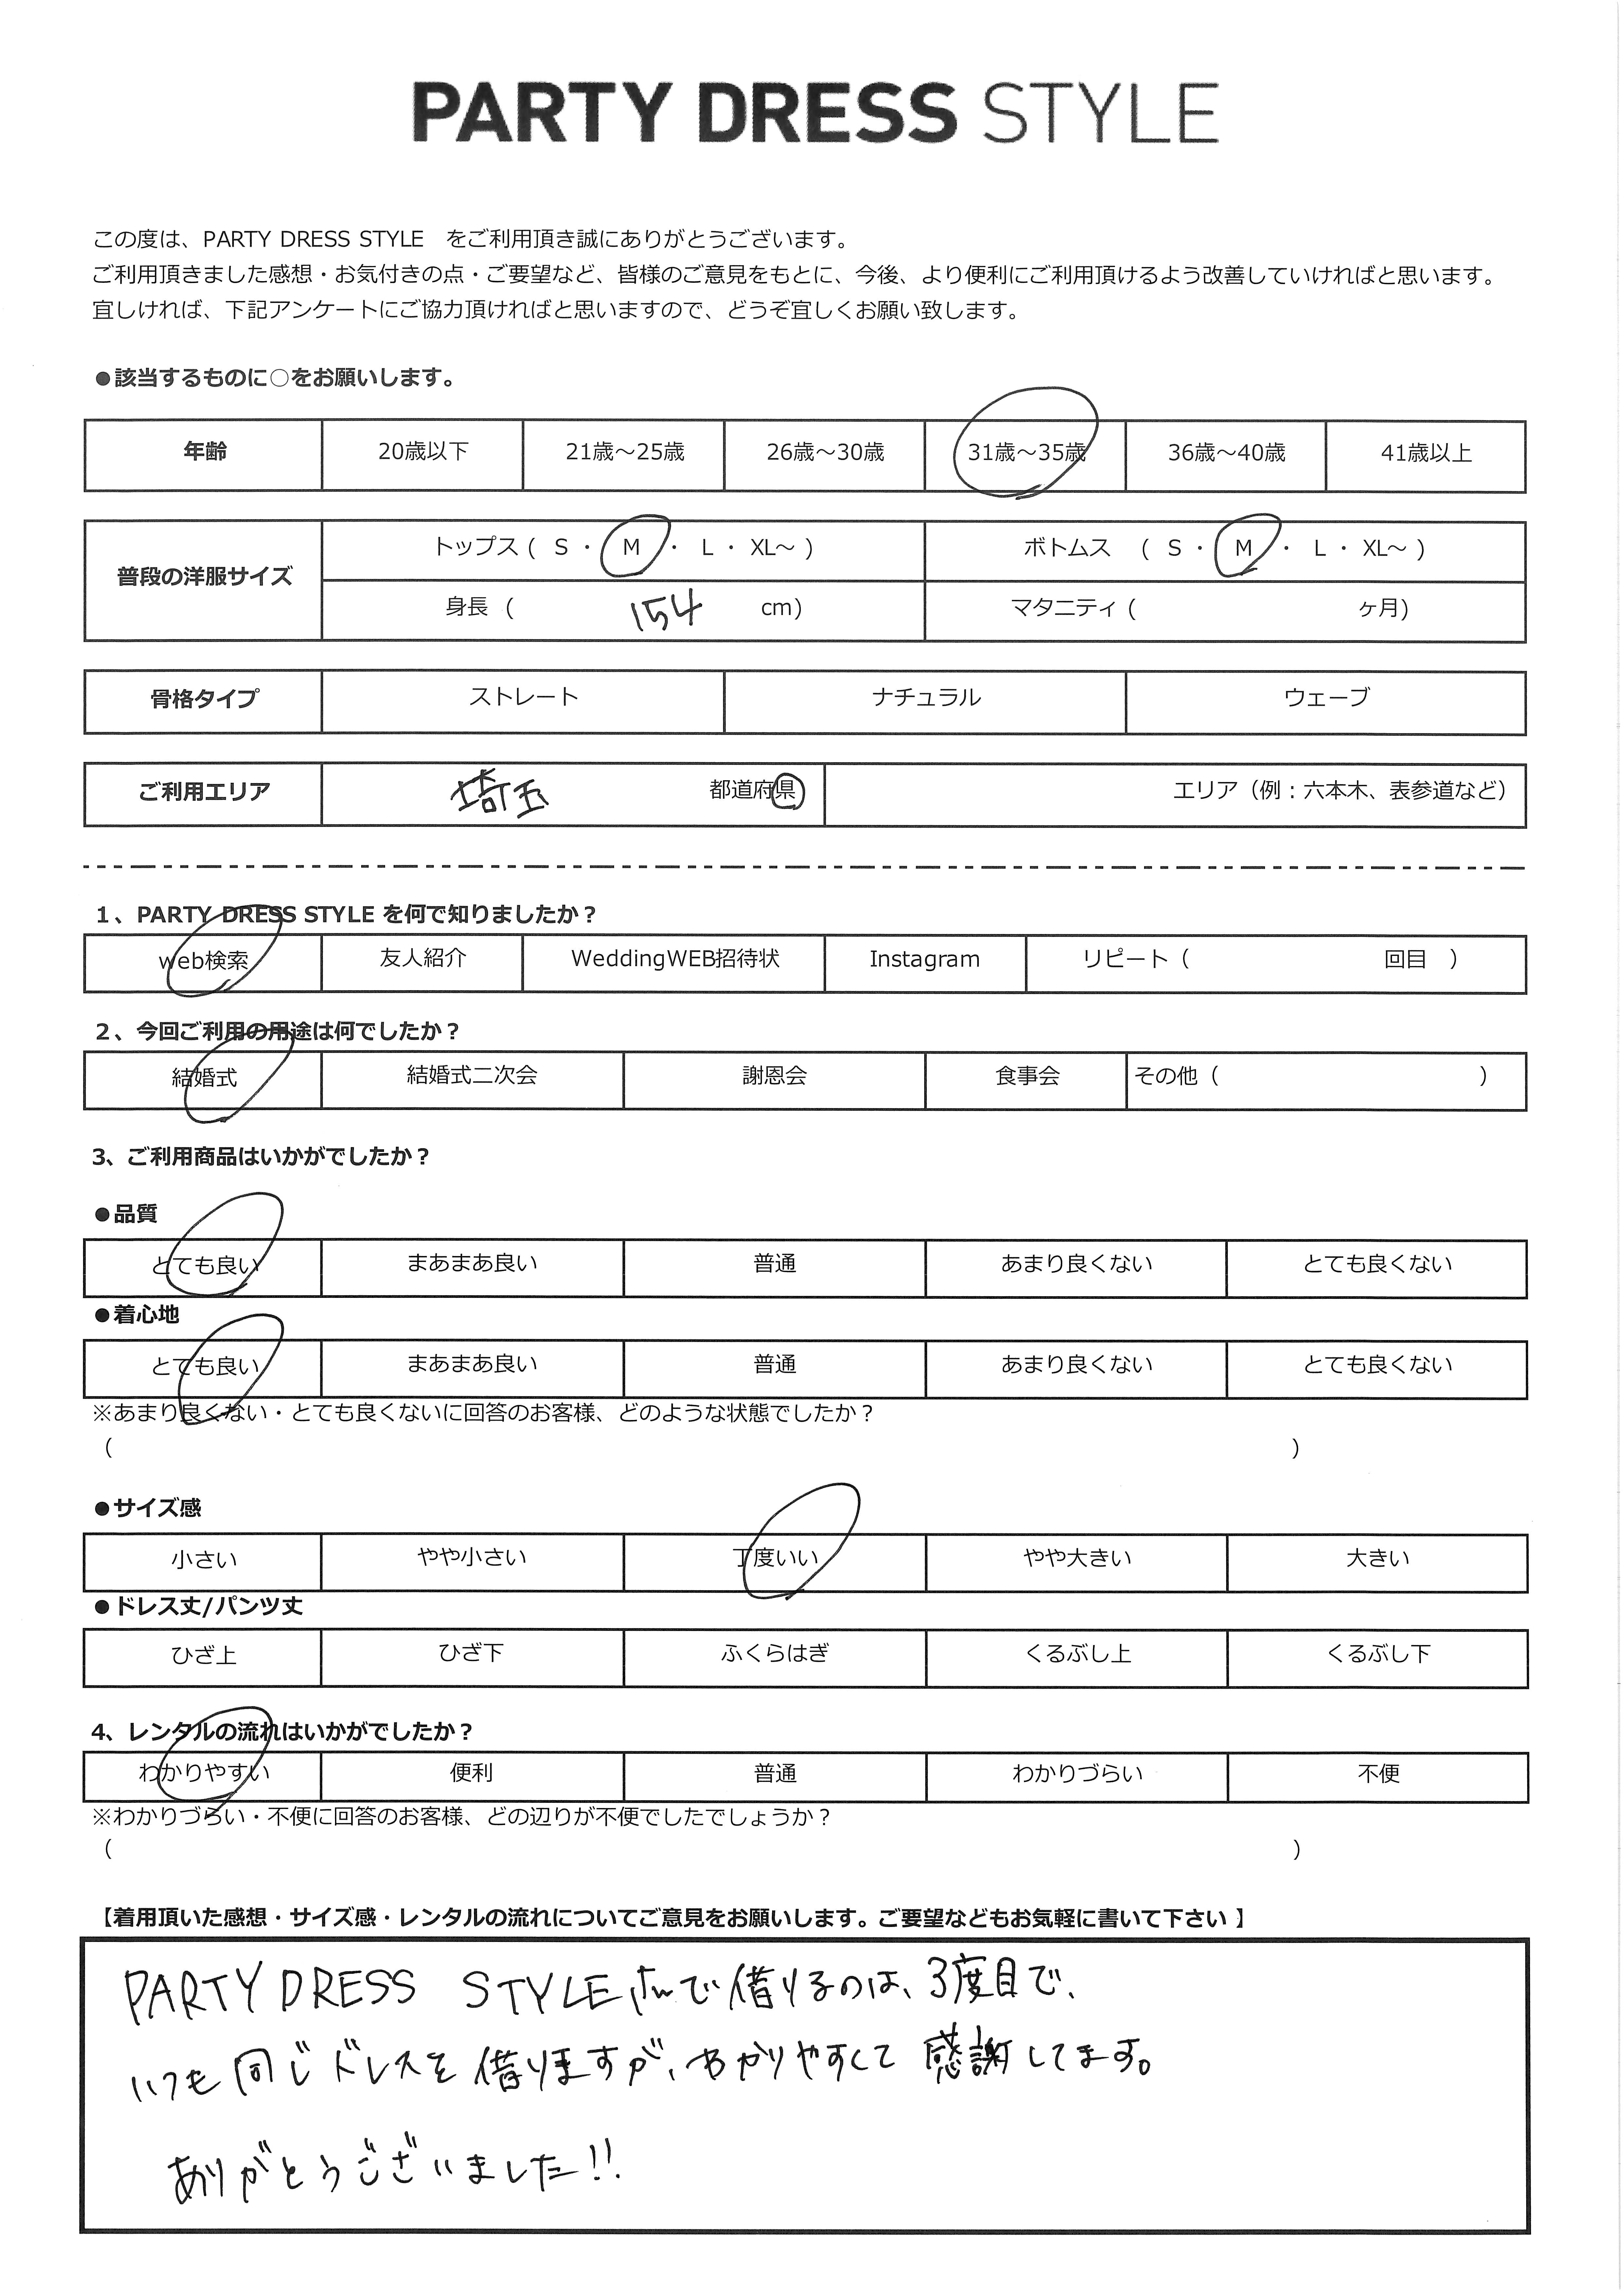 PARTY DRESS STYLE
この度は、PARTY DRESS STYLE　をご利用頂き誠にありがとうございます。
ご利用頂きました感想・お気付きの点・ご要望など、皆様のご意見をもとに、今後、より便利にご利用頂けるよう改善していければと思います。
宜しければ、下記アンケートにご協力頂ければと思いますので、どうぞ宜しくお願い致します。
●該当するものに○をお願いします。
年齢 20歳以下 21歳～25歳 26歳～30歳 31歳～35歳 36歳～40歳 41歳以上
普段の洋服サイズ トップス ( S ・ M ・ L ・ XL～ ) ボトムス ( S ・ M ・ L ・ XL～ )
身長 ( 154 cm) マタニティ ( ヶ月)
骨格タイプ ストレート ナチュラル ウェーブ
ご利用エリア 埼玉 都道府県 エリア（例：六本木、表参道など）
1、PARTY DRESS STYLE を何で知りましたか？
web検索 友人紹介 WeddingWEB招待状 Instagram リピート（ 回目 ）
2、今回ご利用の用途は何でしたか？
結婚式 結婚式二次会 謝恩会 食事会 その他（ ）
3、ご利用商品はいかがでしたか？
●品質
とても良い まあまあ良い 普通 あまり良くない とても良くない
●着心地
とても良い まあまあ良い 普通 あまり良くない とても良くない
※あまり良くない・とても良くないに回答のお客様、どのような状態でしたか？
（ ）
●サイズ感
小さい やや小さい 丁度いい やや大きい 大きい
●ドレス丈/パンツ丈
ひざ上 ひざ下 ふくらはぎ くるぶし上 くるぶし下
4、レンタルの流れはいかがでしたか？
わかりやすい 便利 普通 わかりづらい 不便
※わかりづらい・不便に回答のお客様、どの辺りが不便でしたでしょうか？
（ ）
【着用頂いた感想・サイズ感・レンタルの流れについてご意見をお願いします。ご要望などもお気軽に書いて下さい 】
PARTY DRESS STYLEさんで借りるのは、3度目で、
いつも同じドレスを借りますが、わかりやすくて感謝してます。
ありがとうございました!!